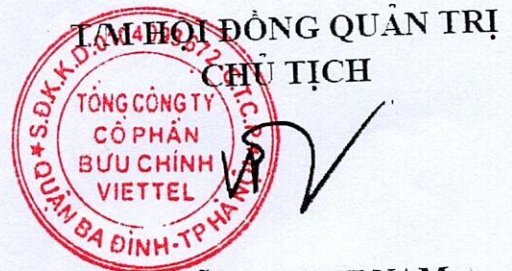 T/M HỘI ĐỒNG QUẢN TRỊ
CHỦ TỊCH
S.Đ.K.K.D:
C.T.C.P
TỔNG CÔNG TY
CỔ PHẦN
BƯU CHÍNH
VIETTEL
QUẬN BA ĐÌNH-TP HÀ NỘI